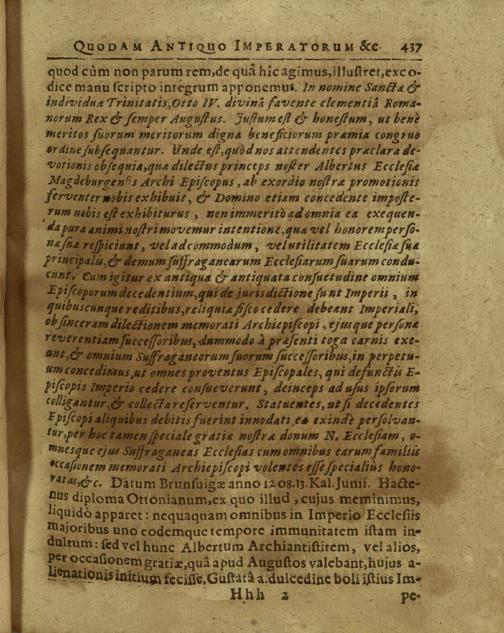 QUODAM ANTIQUO IMPERATORUM &c. 437
quod cùm non parum rem, de quâ hîc agimus, illustret, ex co-
dice manu scripto integrum apponemus. In nomine Sanctæ &
individuæ Trinitatis, Otto IV. divinâ favente clementiâ Roma-
norum Rex & semper Augustus. Justum est & honestum, ut benè
meritos suorum meritorum digna beneficiorum præmia congruo
ordine subsequantur. Unde est, quòd nos attendentes præclara de-
votionis obsequia, quæ dilectus princeps noster Albertus Ecclesiæ
Magdeburgensis Archi Episcopus, ab exordio nostræ promotionis
ferventer nobis exhibuit, & Domino etiam concedente imposte-
rum nobis est exhibiturus, non immeritò ad omnia ea exequen-
da pura animi nostri movemur intentione, quæ vel honorem perso-
næ suæ respiciunt, vel ad commodum, vel utilitatem Ecclesiæ suæ
principalis, & demum suffraganearum Ecclesiarum suarum condu-
cunt. Cum igitur ex antiqua & antiquata consuetudine omnium
Episcoporum decedentium, qui de jurisdictione sunt Imperii, in
quibuscunque reditibus, reliquia fisco cedere debeant Imperiali,
ob sinceram dilectionem memorati Archiepiscopi, ejusque personæ
reverentiam successoribus, dummodo à præsenti toga carnis exe-
unt, & omnium Suffraganeorum suorum successoribus, in perpetu-
um concedimus, ut omnes proventus Episcopales, qui defunctis E-
piscopis Imperio cedere consueverunt, deinceps ad usus ipsorum
colligantur, & collecta reserventur. Statuentes, ut si decedentes
Episcopi aliquibus debitis fuerint innodati, ea exinde persolvan-
tur, per hoc tamen speciale gratiæ nostræ donum N. Ecclesiam, o-
mnesque ejus Suffraganeas Ecclesias cum omnibus earum familiis
occasionem memorati Archiepiscopi volentes esse specialius hono-
ratas, &c. Datum Brunsuigæ anno 1208. 13. Kal. Junii. Hacte-
nus diploma Ottonianum, ex quo illud, cujus meminimus,
liquidò apparet: nequaquam omnibus in Imperio Ecclesiis
majoribus uno codemque tempore immunitatem istam in-
dultum: sed vel hunc Albertum Archiantistitem, vel alios,
per occasionem gratiæ, quâ apud Augustos valebant, hujus a-
lienationis initium fecisse. Gustatâ a. dulcedine boli istius Im-
Hhh 2 pe-